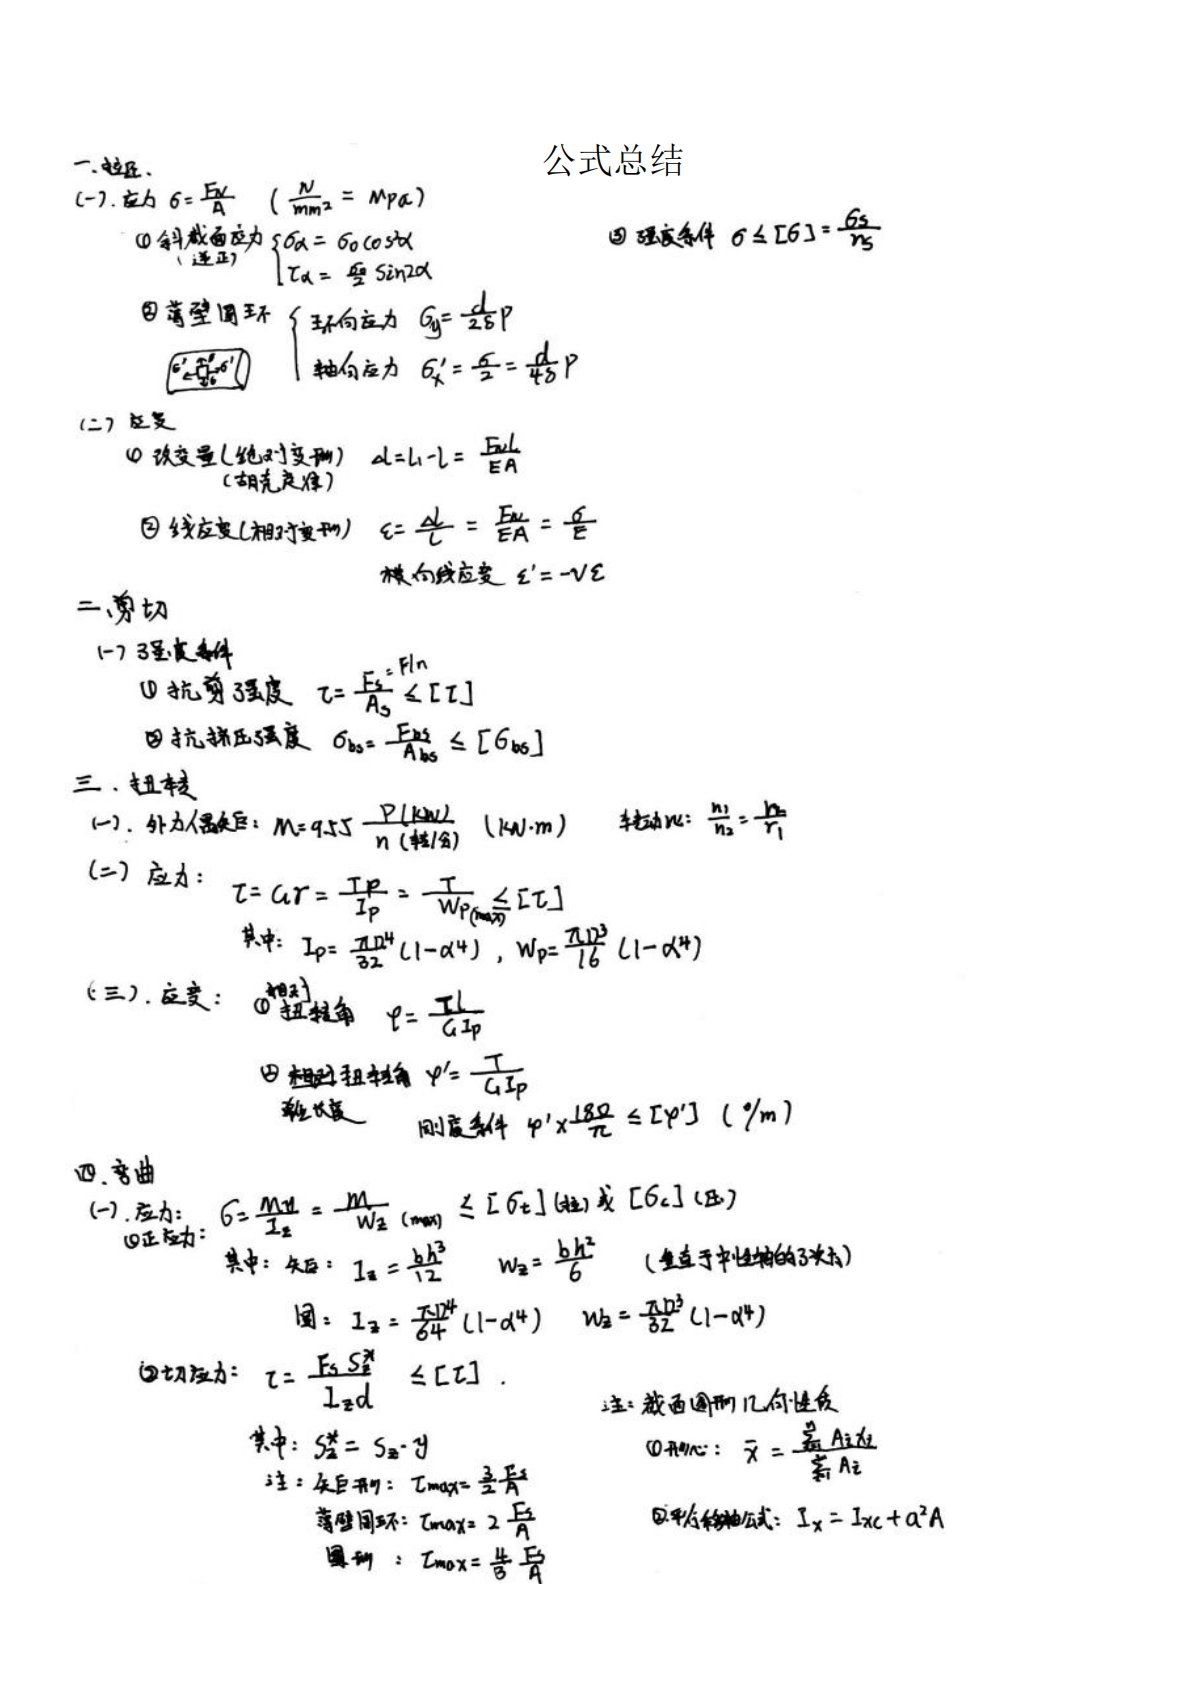 公式总结
一、拉压.
(一).应力 σ=F_N/A (N/mm² = MPa)
①斜截面应力 { σα = σ₀cos²α
(逆正) τα = σ₀/2 sin2α
③强度条件 σ≤[σ]=σs/ns
②薄壁圆环 { 环向应力 σy= d/2δ P
轴向应力 σx'= σ/2 = d/4δ P
σ' σ'
(二) 应变
①改变量(绝对变形) Δl=l₁-l= F_N l/EA
(胡克定律)
②线应变(相对变形) ε= Δl/l = F_N/EA = σ/E
横向线应变 ε'=-νε
二、剪切
(一)强度条件
①抗剪强度 τ= Fs/As ≤[τ]
=F/n
②抗挤压强度 σbs= Fbs/Abs ≤ [σbs]
三.扭转
(一).外力偶矩: M=9.55 P(kW)/n(转/分) (kN·m) 转动比: n₁/n₂ = r₂/r₁
(二) 应力: τ= Gγ = Tρ/Ip = T/Wp(max) ≤[τ]
其中: Ip= πD⁴/32 (1-α⁴), Wp= πD³/16 (1-α⁴)
(三).应变: ①相对扭转角 φ= TL/GIp
② 扭转角 φ'= T/GIp
单位长度
刚度条件 φ'× 180/π ≤[φ'] (°/m)
四.弯曲
(一).应力: σ= My/Iz = M/Wz (max) ≤[σt](拉)或[σc](压)
①正应力:
其中: 矩: Iz = bh³/12 Wz= bh²/6 (垂直于中性轴的3次方)
圆: Iz = πD⁴/64 (1-α⁴) Wz = πD³/32 (1-α⁴)
②切应力: τ= Fs Sz*/Iz d ≤[τ].
其中: Sz*= Sz·y
注: 矩形: τmax= 3/2 Fs/A
薄壁圆环: τmax= 2 Fs/A
圆形 : τmax = 4/3 Fs/A
注: 截面图形几何性质
①形心: x̄ = ΣAixi/ΣAi
②平行移轴公式: Ix = Ixc+a²A